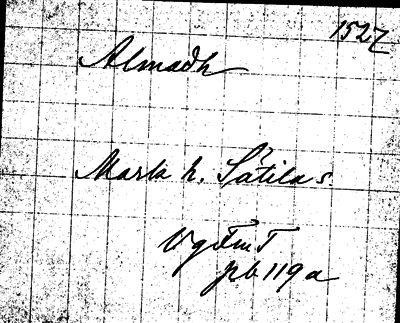 1527
Almadh
Marks h. Sätila s.
VgFmT
pb 119a